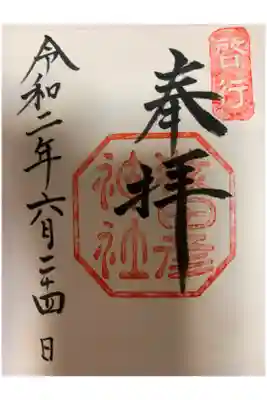 啓行
奉拝
猿田彦
神社
令和二年六月二十四日